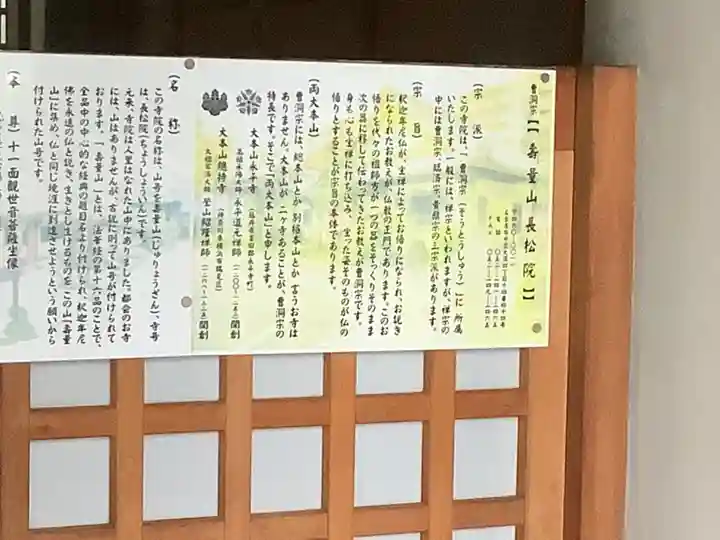 曹洞宗【壽量山 長松院】
(宗 派)
この寺院は、「曹洞宗(そうとうしゅう)」に所属
いたします。一般には、禅宗といわれますが、禅宗の
中には曹洞宗、臨済宗、黄檗宗の三宗派があります。
(宗 旨)
釈迦牟尼仏が、坐禅によってお悟りになられ、お説き
になられたお教えが、仏教の正門であります。このお
悟りを代々の祖師方が一つの器をそっくりそのまま
次の器に移して伝わってきたお教えが曹洞宗です。
身も心も坐禅に打ち込み、坐った姿そのものが仏の
悟りとすることが宗旨の本体であります。
(両大本山)
曹洞宗には、総本山とか別格本山とか言うお寺は
ありません。大本山が、二ヶ寺あることが、曹洞宗の
特長です。そこで「両大本山」と申します。
大本山永平寺(福井県吉田郡永平寺町)
高祖承陽大師 永平道元禅師 開創
大本山總持寺(神奈川県横浜市鶴見区)
太祖常済大師 瑩山紹瑾禅師 開創
(名 称)
この寺院の名称は、山号を壽量山(じゅりょうざん)、寺号
は、長松院(ちょうしょういん)です。
元来、寺院は人里はなれた山中にありました。都会のお寺
には、山はありませんが、古説に則って山号が付けられて
おります。「壽量山」とは、法華経の第十六品のことで、
全品中の中心的な経典の題目名より付けられ、釈迦牟尼
佛を永遠の仏と説き、生きとし生けるものを、この山「壽量
山」に集め、仏と同じ境涯に到達させようという願いから
付けられた山号です。
(本 尊)十一面観世音菩薩坐像